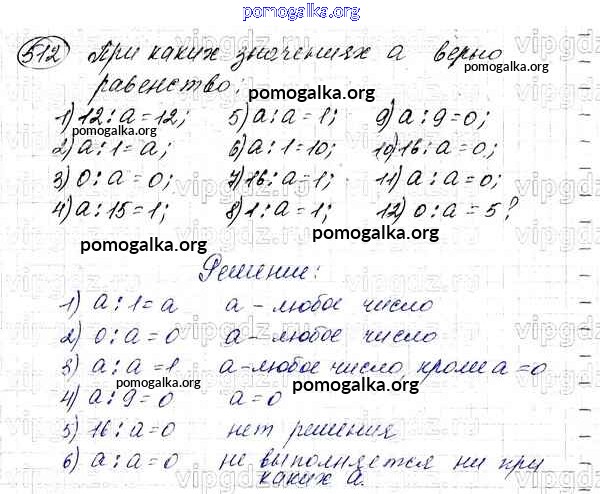 pomogalka.org
512 При каких значениях а верно
равенство:
1) 12 : а = 12; 5) а : а = 1; 9) а : 9 = 0;
2) а : 1 = а; 6) а : 1 = 10; 10) 16 : а = 0;
3) 0 : а = 0; 7) 16 : а = 1; 11) а : а = 0;
4) а : 15 = 1; 8) 1 : а = 1; 12) 0 : а = 5?
pomogalka.org
Решение:
1) а : 1 = а а - любое число
2) 0 : а = 0 а - любое число
3) а : а = 1 а - любое число, кроме а = 0
4) а : 9 = 0 а = 0
5) 16 : а = 0 нет решения
6) а : а = 0 не выполняется ни при
каких а.
pomogalka.org